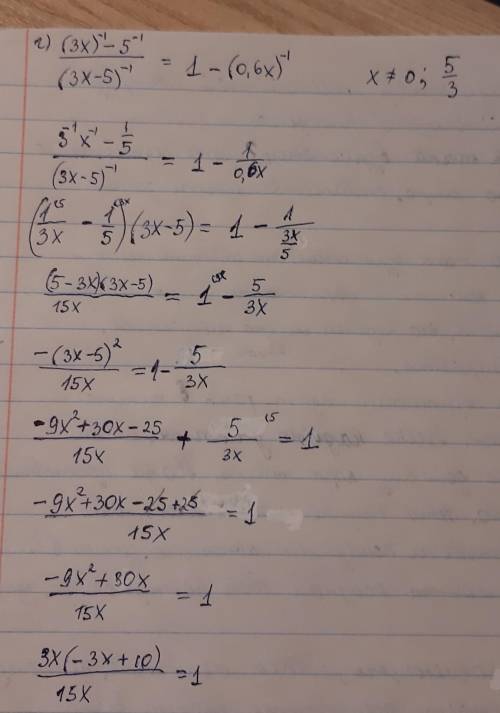 г) ((3x)⁻¹ - 5⁻¹)/(3x-5)⁻¹ = 1 - (0,6x)⁻¹    x ≠ 0; 5/3
(3⁻¹x⁻¹ - 1/5)/(3x-5)⁻¹ = 1 - 1/0,6x
(1/3x - 1/5)·(3x-5) = 1 - 1/(3x/5)
(5-3x)(3x-5)/15x = 1 - 5/3x
-(3x-5)²/15x = 1 - 5/3x
(-9x²+30x-25)/15x + 5/3x = 1
(-9x²+30x-25+25)/15x = 1
(-9x²+30x)/15x = 1
3x(-3x+10)/15x = 1